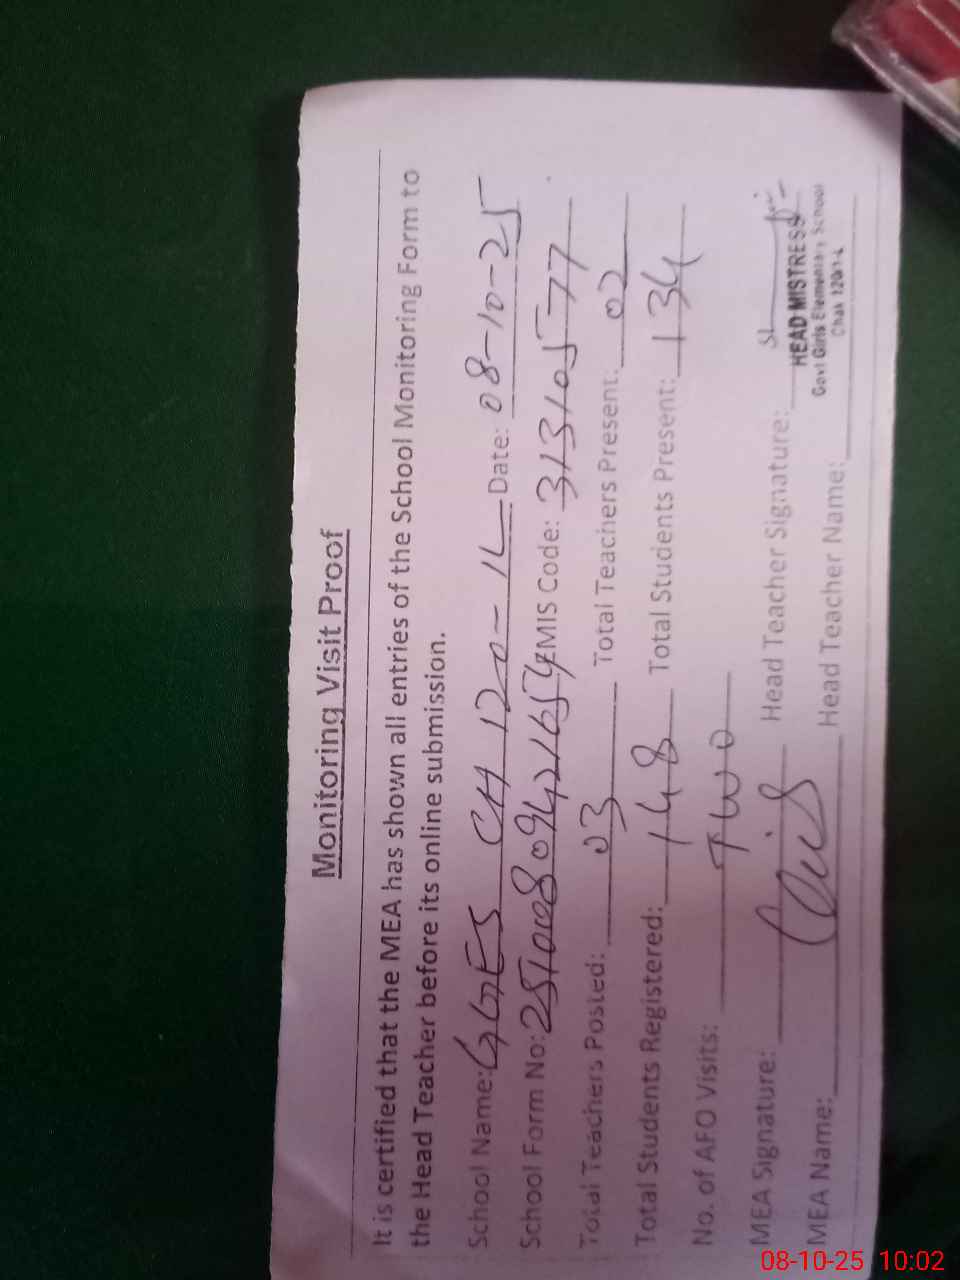 Monitoring Visit Proof
It is certified that the MEA has shown all entries of the School Monitoring Form to
the Head Teacher before its online submission.
School Name: GGES CH 120-1L Date: 08-10-25
School Form No: 25100809421654 EMIS Code: 31310577
Total Teachers Posted: 03 Total Teachers Present: 02
Total Students Registered: 148 Total Students Present: 134
No. of AFO Visits: Two
MEA Signature: Head Teacher Signature:
HEAD MISTRESS
Govt Girls Elementary School
Chak 120/1-L
MEA Name: Head Teacher Name:
08-10-25 10:02